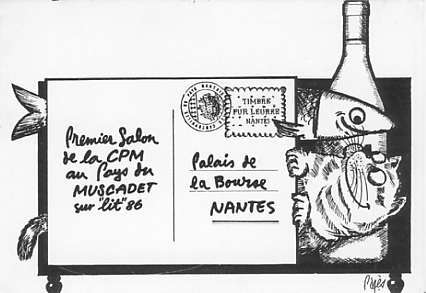 Premier Salon
de la CPM
au Pays du
MUSCADET
sur "lit" 86
TIMBRE
PUR LEURRE
NANTES
Palais de
la Bourse
NANTES